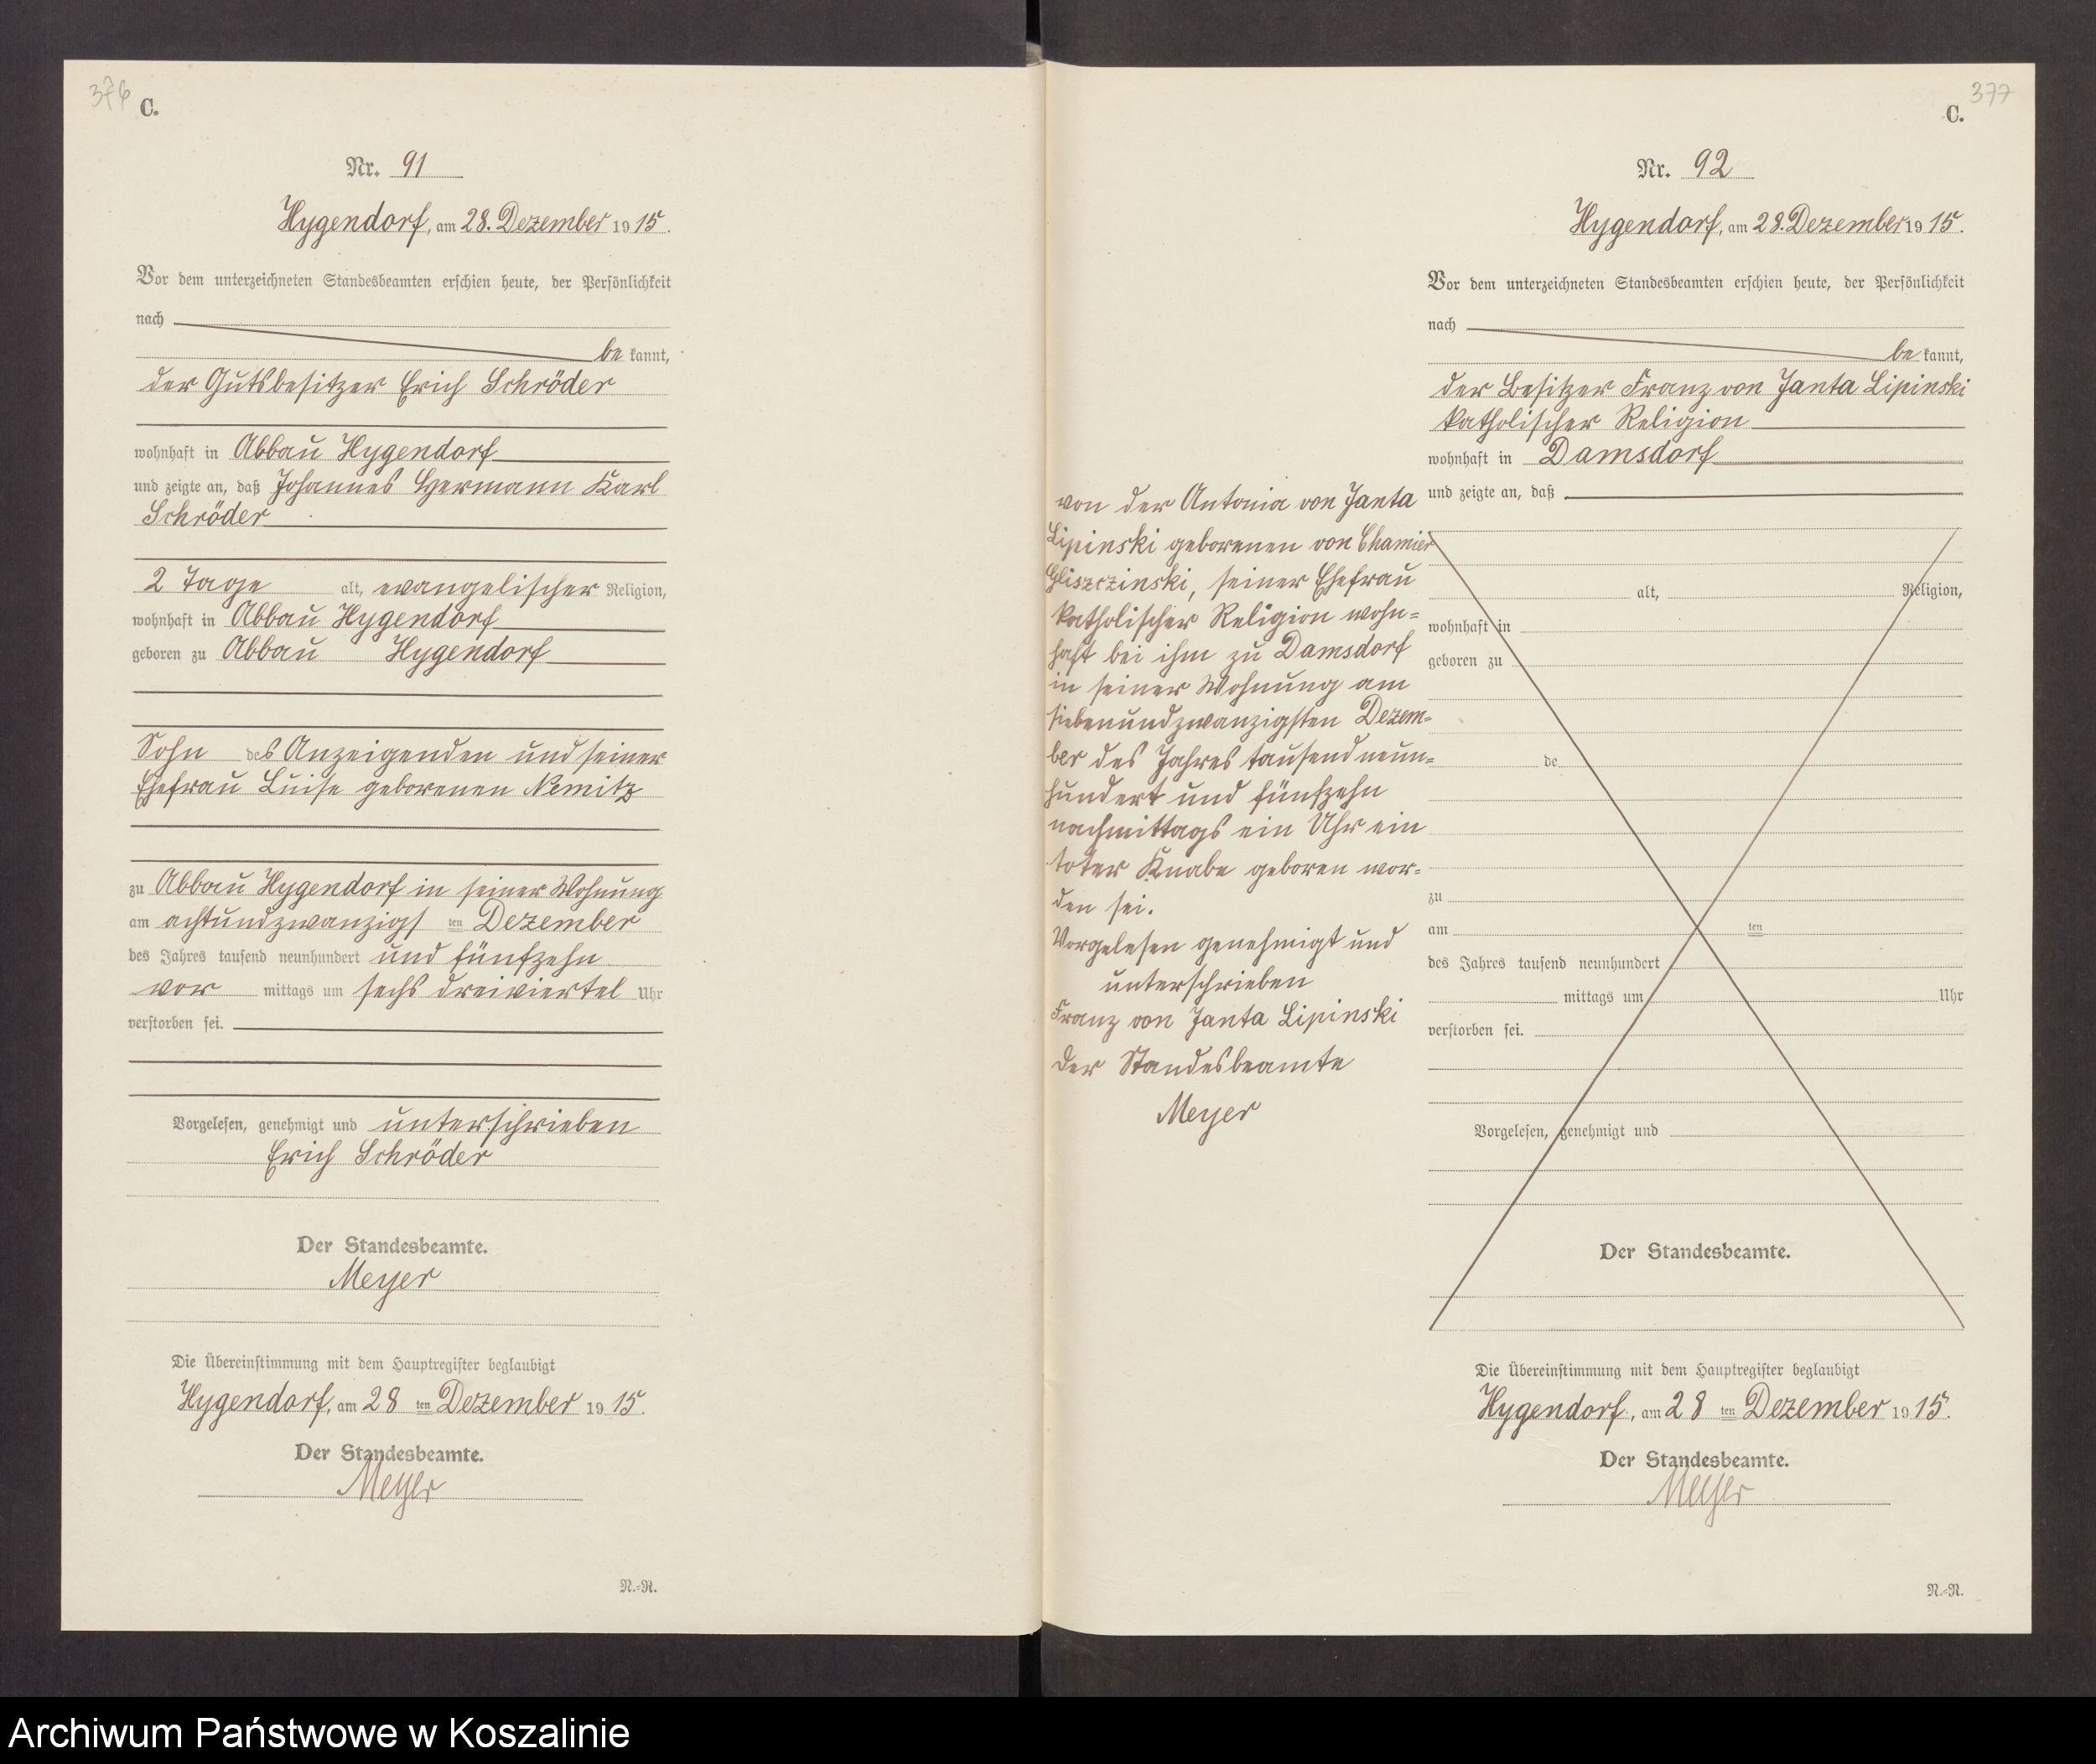 376
C.
Nr. 91
Hygendorf, am 28. Dezember 1915.
Vor dem unterzeichneten Standesbeamten erschien heute, der Persönlichkeit
nach
be kannt,
der Gutsbesitzer Erich Schröder
wohnhaft in Abbau Hygendorf
und zeigte an, daß Johannes Hermann Karl
Schröder
2 Tage alt, evangelischer Religion,
wohnhaft in Abbau Hygendorf
geboren zu Abbau Hygendorf
Sohn des Anzeigenden und seiner
Ehefrau Luise geborenen Nemitz
zu Abbau Hygendorf in seiner Wohnung
am achtundzwanzigs ten Dezember
des Jahres tausend neunhundert und fünfzehn
vor mittags um sechs dreiviertel Uhr
verstorben sei.
Vorgelesen, genehmigt und unterschrieben
Erich Schröder
Der Standesbeamte.
Meyer
Die Übereinstimmung mit dem Hauptregister beglaubigt
Hygendorf, am 28 ten Dezember 1915.
Der Standesbeamte.
Meyer
N.-R.
377
C.
Nr. 92
Hygendorf, am 28. Dezember 1915.
Vor dem unterzeichneten Standesbeamten erschien heute, der Persönlichkeit
nach
be kannt,
der Besitzer Franz von Janta Lipinski
katholischer Religion
wohnhaft in Damsdorf
und zeigte an, daß
von der Antonia von Janta
Lipinski geborenen von Chamier
Gliszczinski, seiner Ehefrau
katholischer Religion wohn=
haft bei ihm zu Damsdorf
in seiner Wohnung am
siebenundzwanzigsten Dezem=
ber des Jahres tausend neun=
hundert und fünfzehn
nachmittags ein Uhr ein
toter Knabe geboren wor=
den sei.
Vorgelesen genehmigt und
unterschrieben
Franz von Janta Lipinski
Der Standesbeamte
Meyer
alt, Religion,
wohnhaft in
geboren zu
de
zu
am ten
des Jahres tausend neunhundert
mittags um Uhr
verstorben sei.
Vorgelesen, genehmigt und
Der Standesbeamte.
Die Übereinstimmung mit dem Hauptregister beglaubigt
Hygendorf, am 28 ten Dezember 1915.
Der Standesbeamte.
Meyer
N.-R.
Archiwum Państwowe w Koszalinie